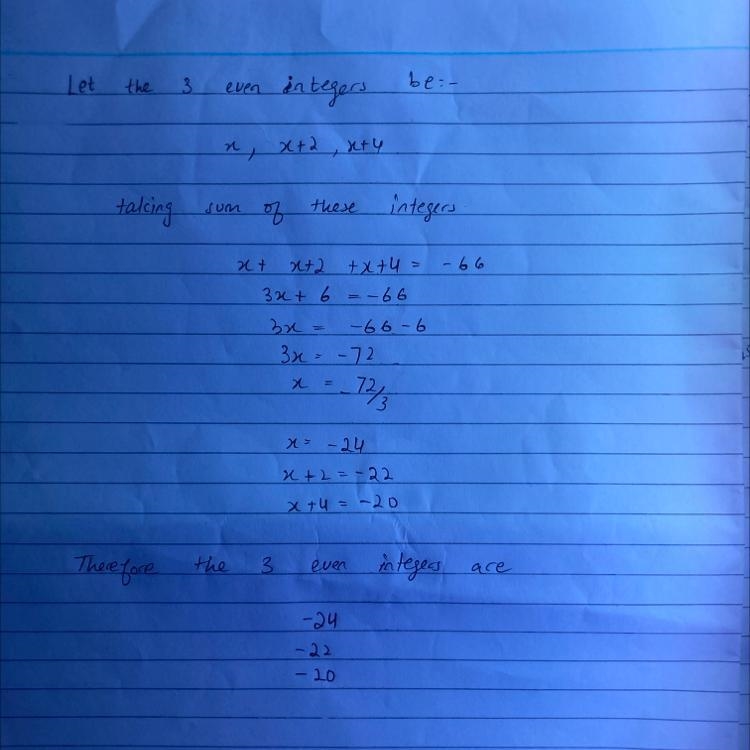 Let the 3 even integers be:-
x, x+2, x+4
taking sum of these integers
x+ x+2 +x+4 = -66
3x+ 6 = -66
3x = -66-6
3x = -72
x = -72/3
x= -24
x+2 = -22
x+4 = -20
Therefore the 3 even integers are
-24
-22
-20